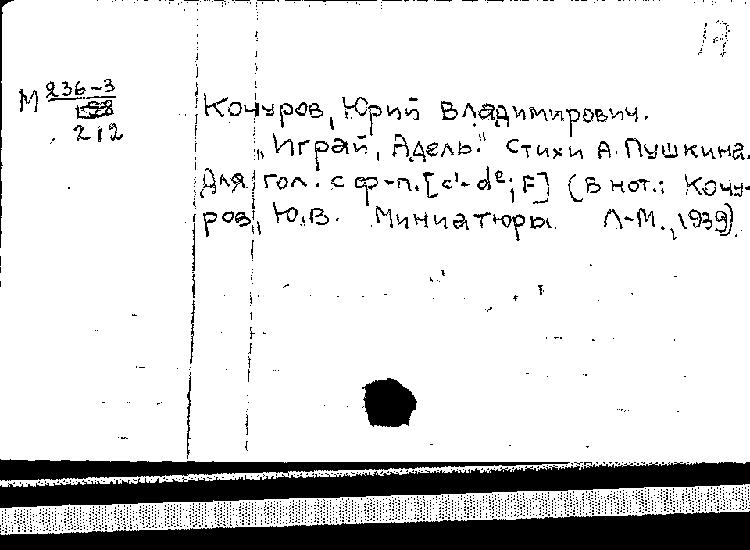 19
М 236-3
212
Кочуров, Юрий Владимирович.
„Играй, Адель." Стихи А. Пушкина.
Для гол. с ф-п. [c¹- d²; F] (В нот.: Кочу-
ров, Ю.В. Миниатюры Л-М., 1939).